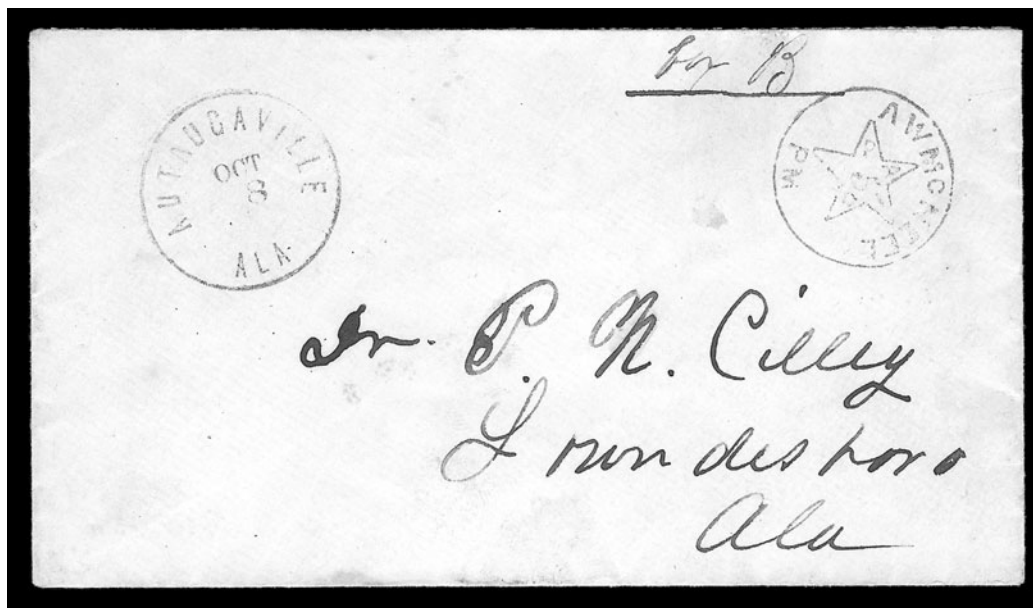 box B
AUTAUGAVILLE
OCT
8
ALA.
A W MCNEEL
PM
P
A
5
D
Dr. P. N. Cilley
Lowndesboro
Ala